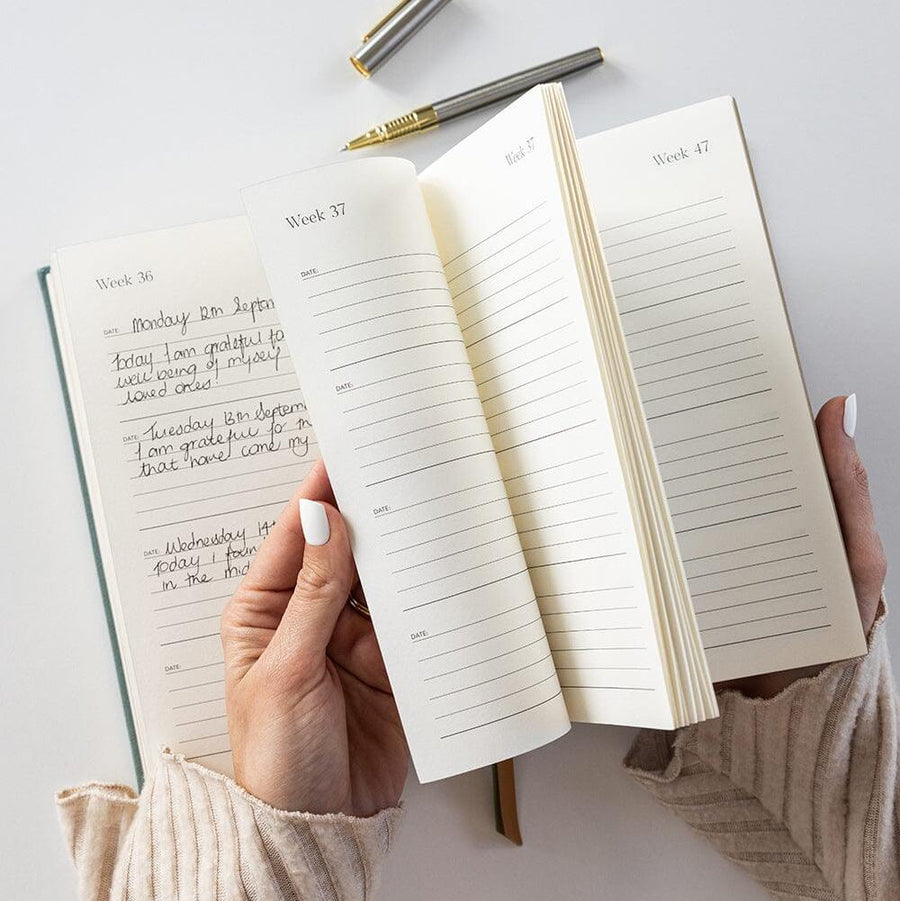 Week 36
DATE: Monday 12th Septem
Today I am grateful fo
well being of myself
loved ones!
DATE: Tuesday 13th Septem
I am grateful fo
that have come my
DATE: Wednesday 14t
Today I foun
in the mid
DATE:
Week 37
DATE:
DATE:
DATE:
DATE:
Week 37
Week 47